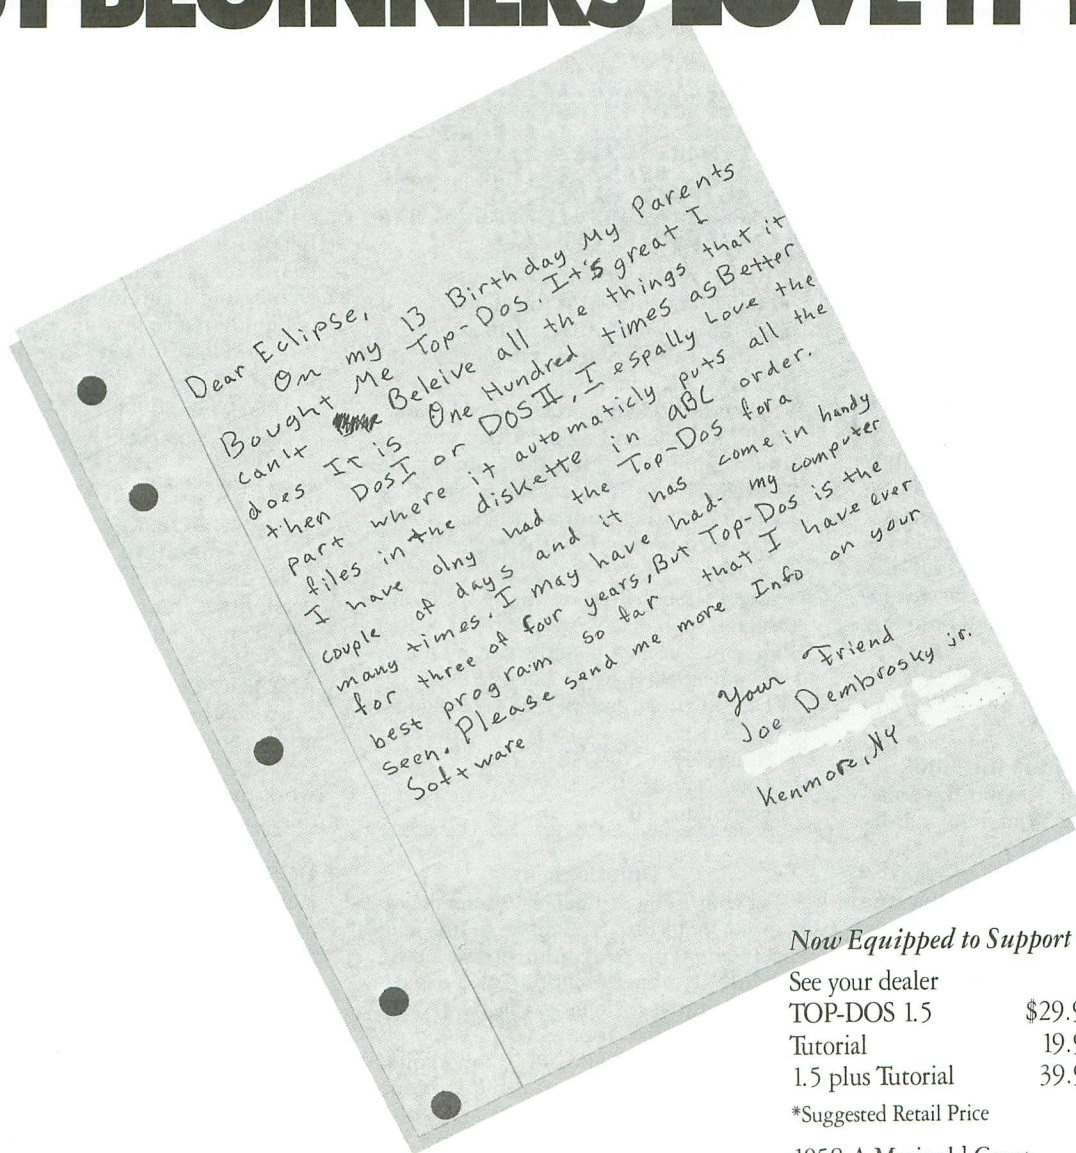 BEGINNERS LOVE IT
Dear Eclipse,
On my 13 Birthday My Parents
Bought Me Top-Dos. It's great I
can't Beleive all the things that it
does It is One Hundred times as Better
then DosI or DOSII, I espally Love the
part where it automaticly puts all the
files in the diskette in aBC order.
I have olny had the Top-Dos for a
couple of days and it has come in handy
many times. I may have had my computer
for three of four years, But Top-Dos is the
best program so far that I have ever
seen. Please send me more Info on your
Software
Your Friend
Joe Dembrosky jr.
Kenmore, NY
Now Equipped to Support
See your dealer
TOP-DOS 1.5 $29.9
Tutorial 19.9
1.5 plus Tutorial 39.9
*Suggested Retail Price